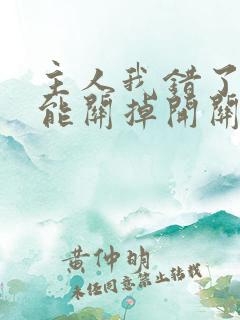 主人我错了
能關掉開關
黄仲明
未经同意禁止转载